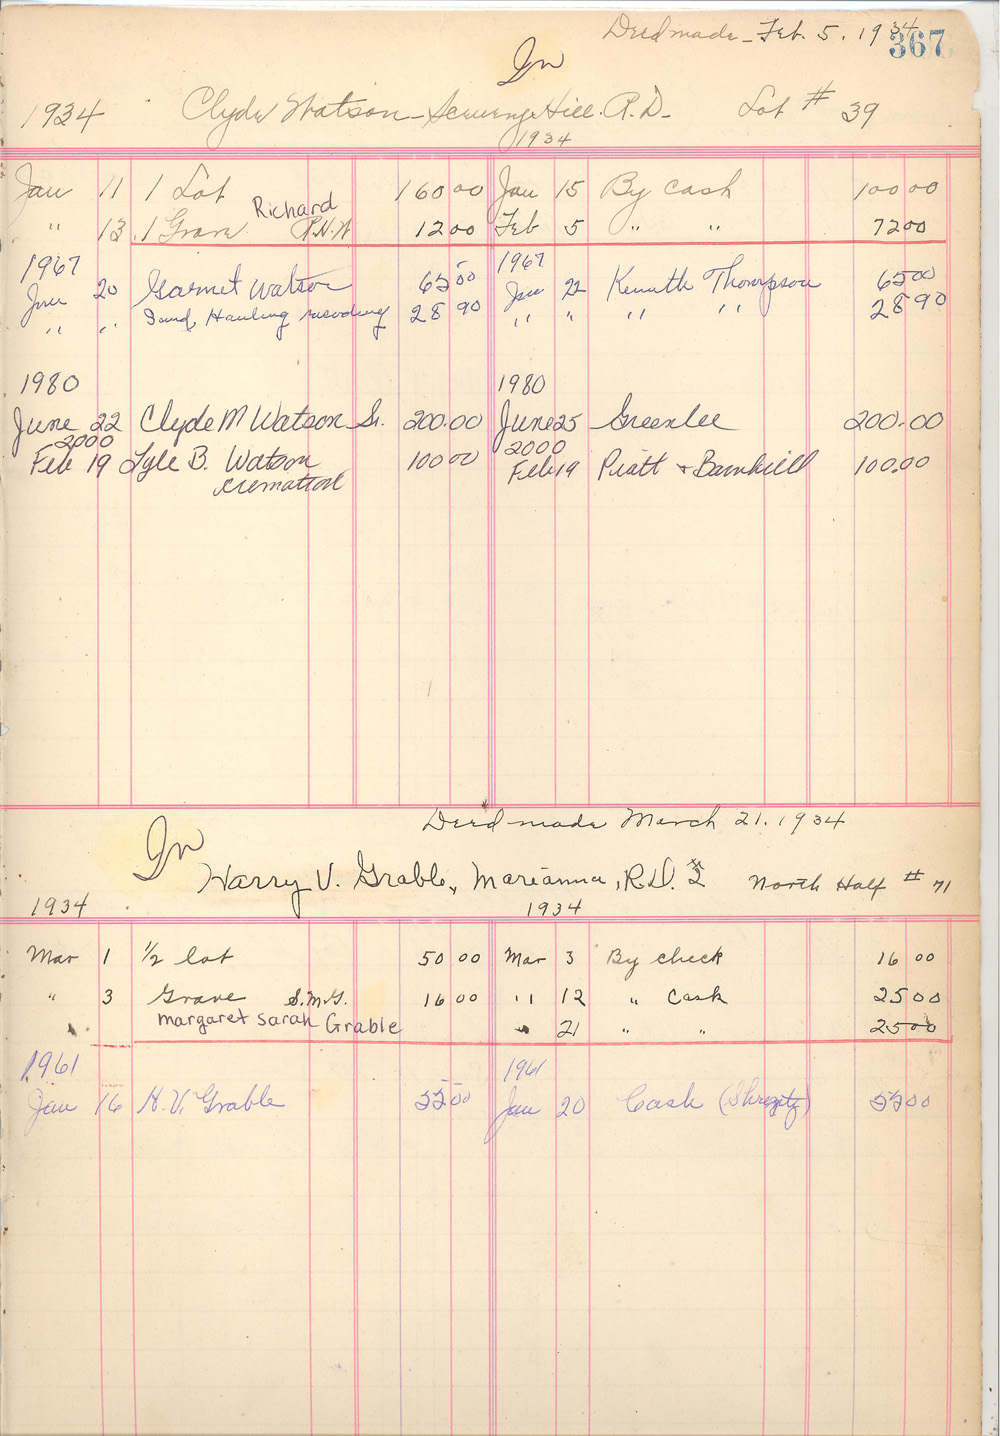 Deed made - Feb. 5. 1934
367
In
1934 Clyde Watson - Scenery Hill. R.D. - Lot # 39
1934
Jan 11 1 Lot 160 00 Jan 15 By Cash 100 00
Richard
" 13 1 Grave R.H.W 12 00 Feb 5 " " 72 00
1967 1967
Jan 20 Garnet Watson 65 00 Jan 22 Kenneth Thompson 65 00
" " Sand, Hauling 28 90 " " " " 28 90
1980 1980
June 22 Clyde M Watson Sr. 200.00 June 25 Greenlee 200.00
2000 2000
Feb 19 Lyle B. Watson 100 00 Feb 19 Piatt + Barnhill 100.00
cremation
Deed made March 21. 1934
In
Harry V. Grable, Marianna, R.D. # 2 North Half # 71
1934 1934
Mar 1 1/2 lot 50 00 Mar 3 By check 16 00
" 3 Grave S.M.G. 16 00 " 12 " Cash 25 00
margaret sarah Grable " 21 " " 25 00
1961 1961
Jan 16 H.V. Grable 55 00 Jan 20 Cash 55 00